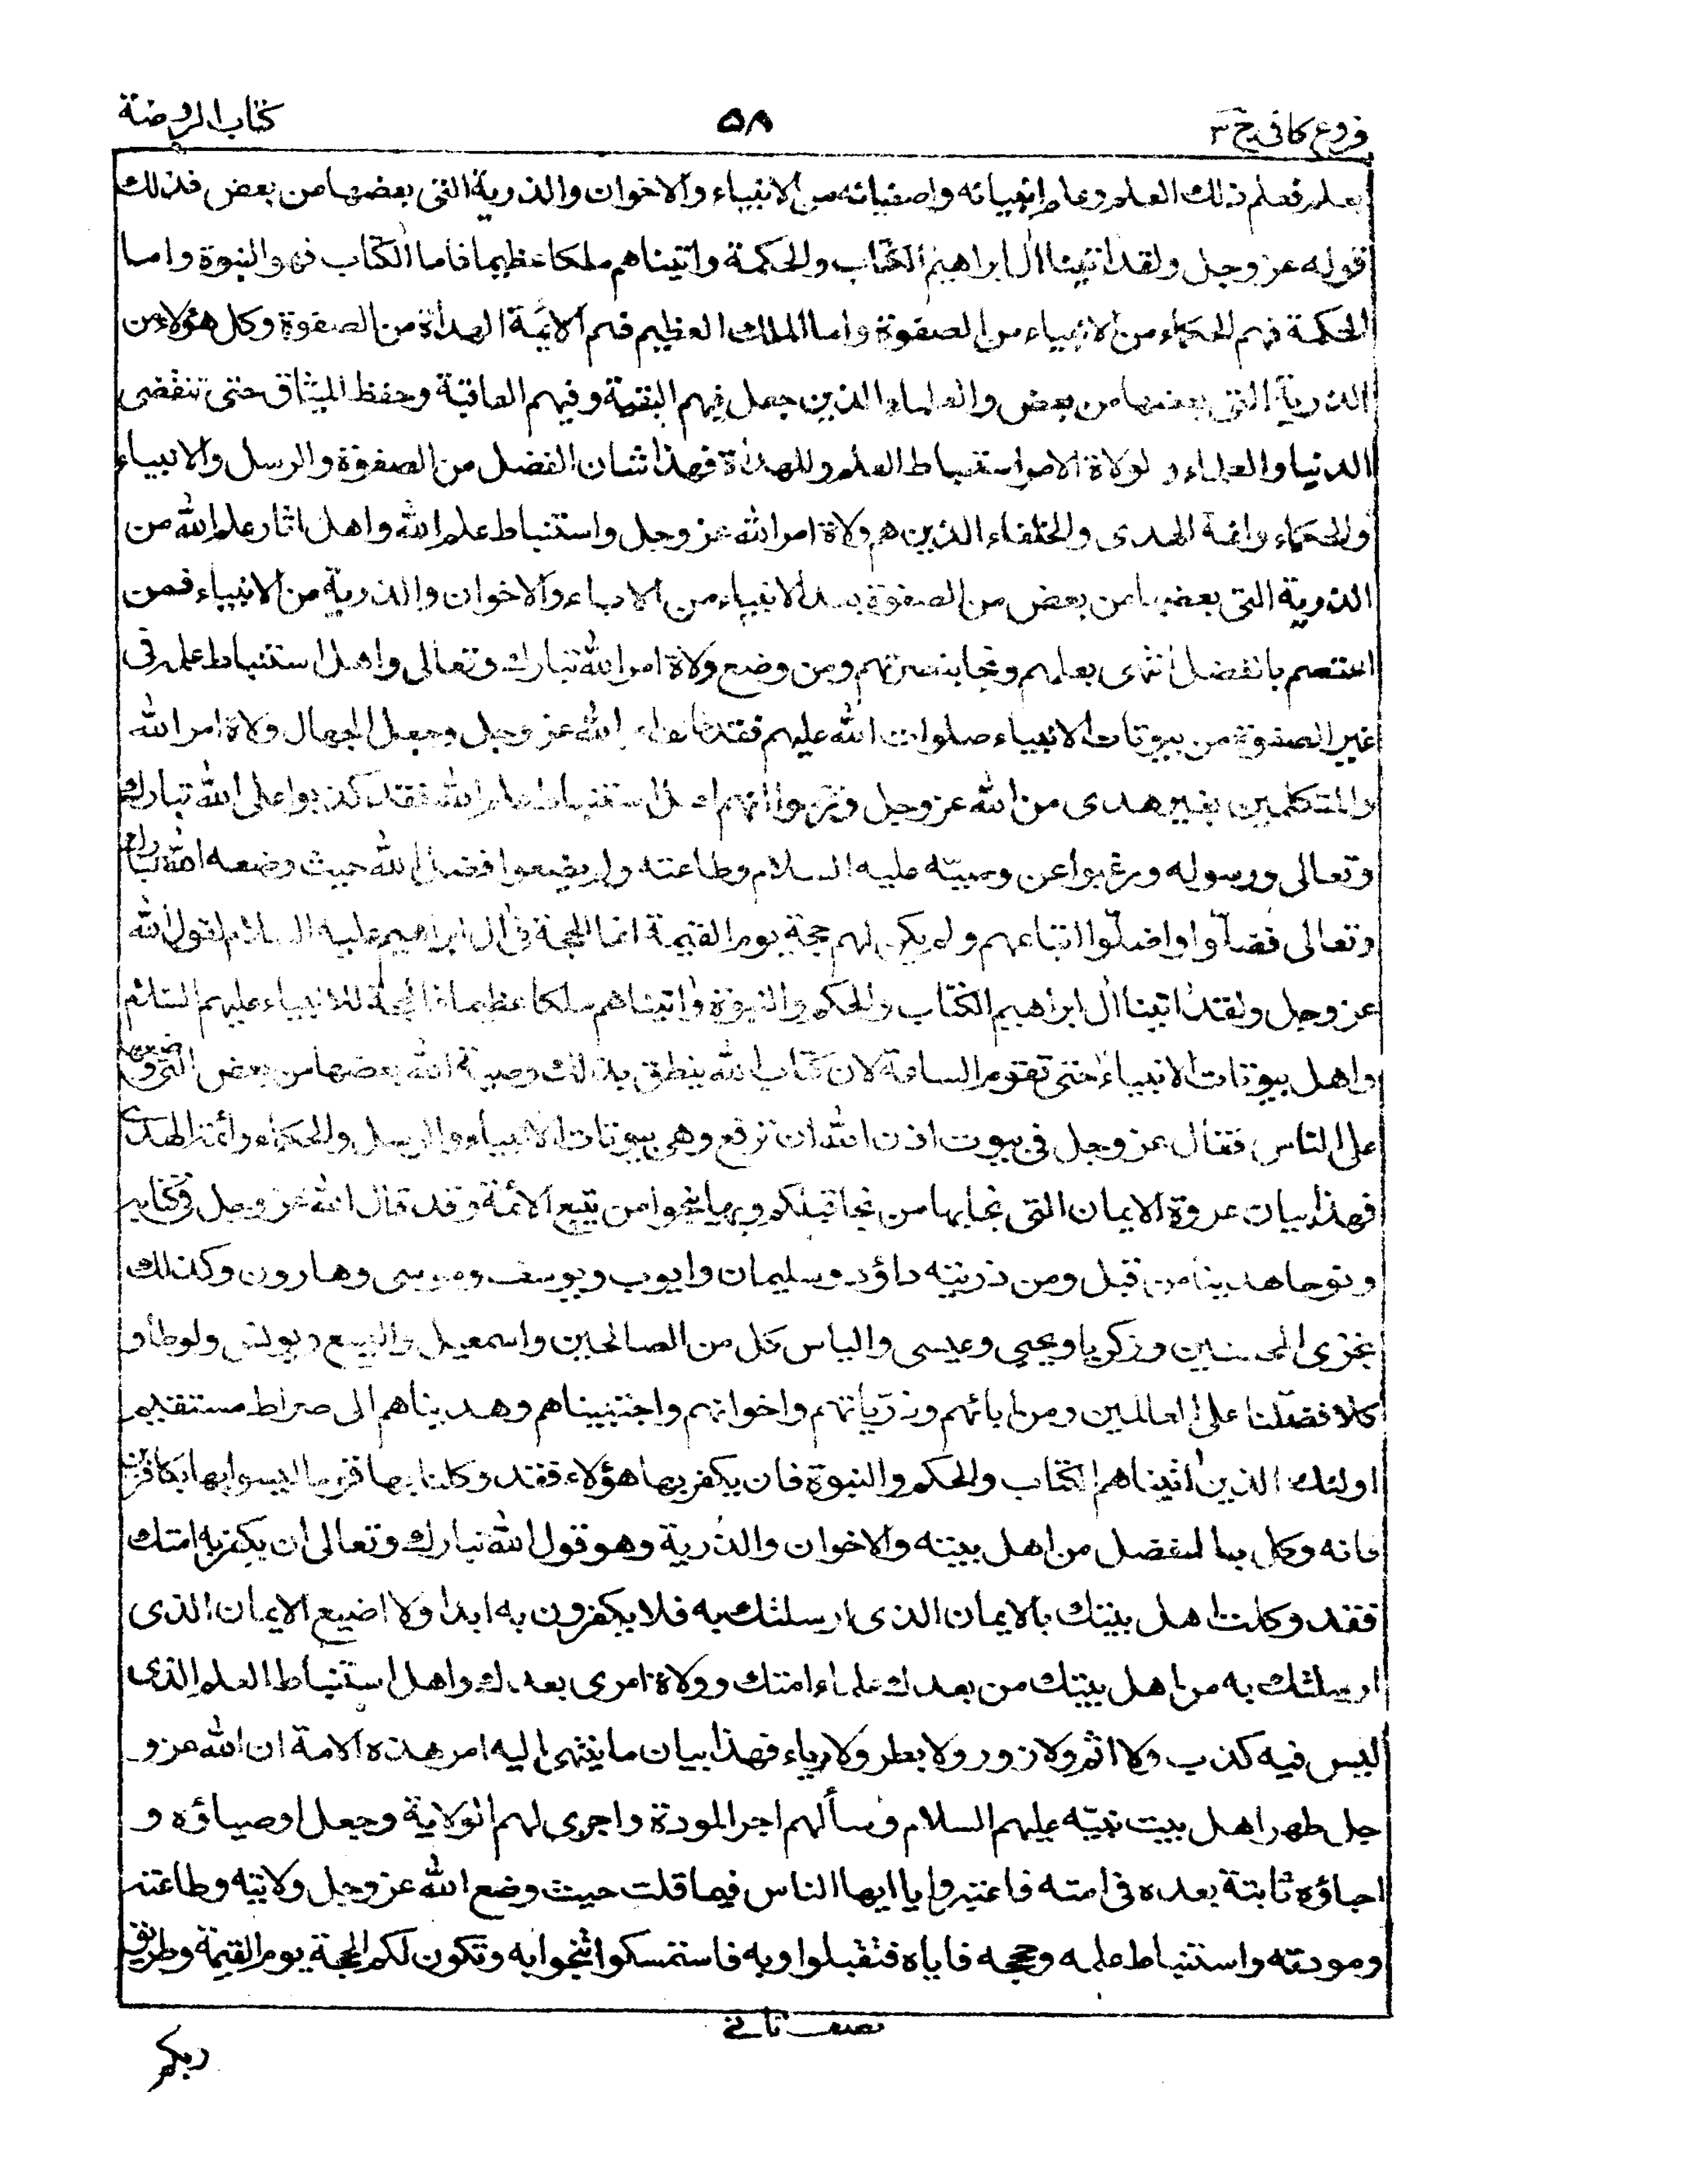 فروع كافى ج ٣
٥٨
كتاب الروضة
بعلم فعلم ذلك العلم وعلم انبيائه واصفيائه من الانبياء والاخوان والذرية التى بعضها من بعض فذلك
قوله عز وجل ولقد اتينا ال ابراهيم الكتاب والحكمة واتيناهم ملكا عظيما فاما الكتاب فهو النبوة واما
الحكمة فهم الحكماء من الانبياء من الصفوة واما الملك العظيم فهم الائمة الهداة من الصفوة وكل هؤلاء من
الذرية التى بعضها من بعض والعلماء الذين جعل فيهم البقية وفيهم العاقبة وحفظ الميثاق حتى تنقضى
الدنيا والعلماء ولولاة الامر استنباط العلم وللهداة فهذا شان الفضل من الصفوة والرسل والانبياء
والحكماء وائمة الهدى والخلفاء الذين هم ولاة امر الله عز وجل واستنباط علم الله واهل اثار علم الله من
الذرية التى بعضها من بعض من الصفوة بعد الانبياء من الاباء والاخوان والذرية من الانبياء فمن
اعتصم بالفضل انتهى بعلمهم ونجا بنصرتهم ومن وضع ولاة امر الله تبارك وتعالى واهل استنباط علمه فى
غير الصفوة من بيوتات الانبياء صلوات الله عليهم فقد خالف امر الله عز وجل وجعل الجهال ولاة امر الله
والمتكلمين بغير هدى من الله عز وجل وزعموا انهم اهل استنباط علم الله فقد كذبوا على الله تبارك
وتعالى ورسوله ورغبوا عن وصيّه عليه السلام وطاعته ولم يضعوا فضل الله حيث وضعه الله تبارك
وتعالى فضلّوا واضلّوا اتباعهم ولم يكن لهم حجة يوم القيمة انما الحجة فى ال ابراهيم عليه السلام لقول الله
عز وجل ولقد اتينا ال ابراهيم الكتاب والحكم والنبوة واتيناهم ملكا عظيما فالحجة للانبياء عليهم السلام
واهل بيوتات الانبياء حتى تقوم الساعة لان كتاب الله ينطق بذلك وصية الله بعضها من بعض التى وضعها
على الناس فقال عز وجل فى بيوت اذن الله ان ترفع وهى بيوتات الانبياء والرسل والحكماء وائمة الهدى
فهذا بيان عروة الايمان التى نجا بها من نجا قبلكم وبها ينجوا من يتبع الأئمة وقد قال الله عز وجل فى كتابه
ونوحا هدينا من قبل ومن ذريته داؤد وسليمان وايوب ويوسف وموسى وهارون وكذلك
نجزى المحسنين وزكريا ويحيى وعيسى والياس كل من الصالحين واسمعيل واليسع ويونس ولوطا و
كلا فضّلنا على العالمين ومن ابائهم وذرّياتهم واخوانهم واجتبيناهم وهديناهم الى صراط مستقيم
اولئك الذين اتيناهم الكتاب والحكم والنبوة فان يكفر بها هؤلاء فقد وكلنا بها قوما ليسوا بها بكافرين
فانه وكل بالفضل من اهل بيته والاخوان والذرية وهو قول الله تبارك وتعالى ان يكفر به امتك
فقد وكلت اهل بيتك بالايمان الذى ارسلتك به فلا يكفرون به ابدا ولا اضيع الايمان الذى
ارسلتك به من اهل بيتك من بعدك علماء امتك وولاة امرى بعدك واهل استنباط العلم الذى
ليس فيه كذب ولا اثم ولا زور ولا بطر ولا رياء فهذا بيان ما ينتهى اليه امر هذه الامة ان الله عز و
جل طهر اهل بيت نبيّه عليهم السلام وسألهم اجر المودة واجرى لهم الولاية وجعل اوصياؤه و
احباؤه ثابتة بعده فى امته فاعتبروا يا ايها الناس فيما قلت حيث وضع الله عز وجل ولايته وطاعته
ومودته واستنباط علمه وحججه فاياه فتقبلوا وبه فاستمسكوا تنجوا به وتكون لكم الحجة يوم القيمة وطريق
نصف ثانى
ربكم